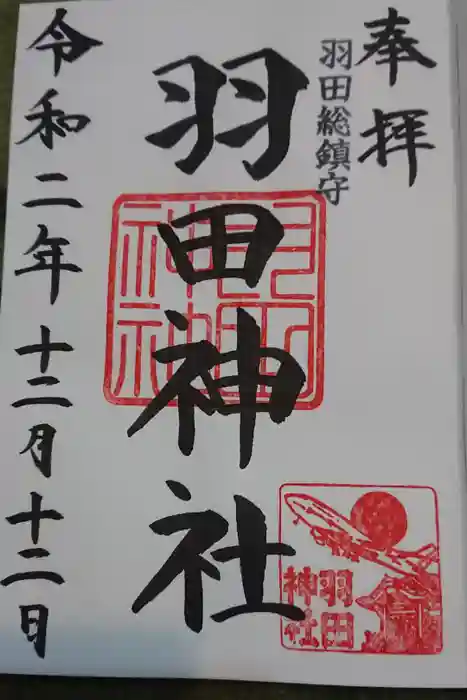 奉拝
羽田総鎮守
羽田神社
令和二年十二月十二日
羽田
神社
羽田
神社